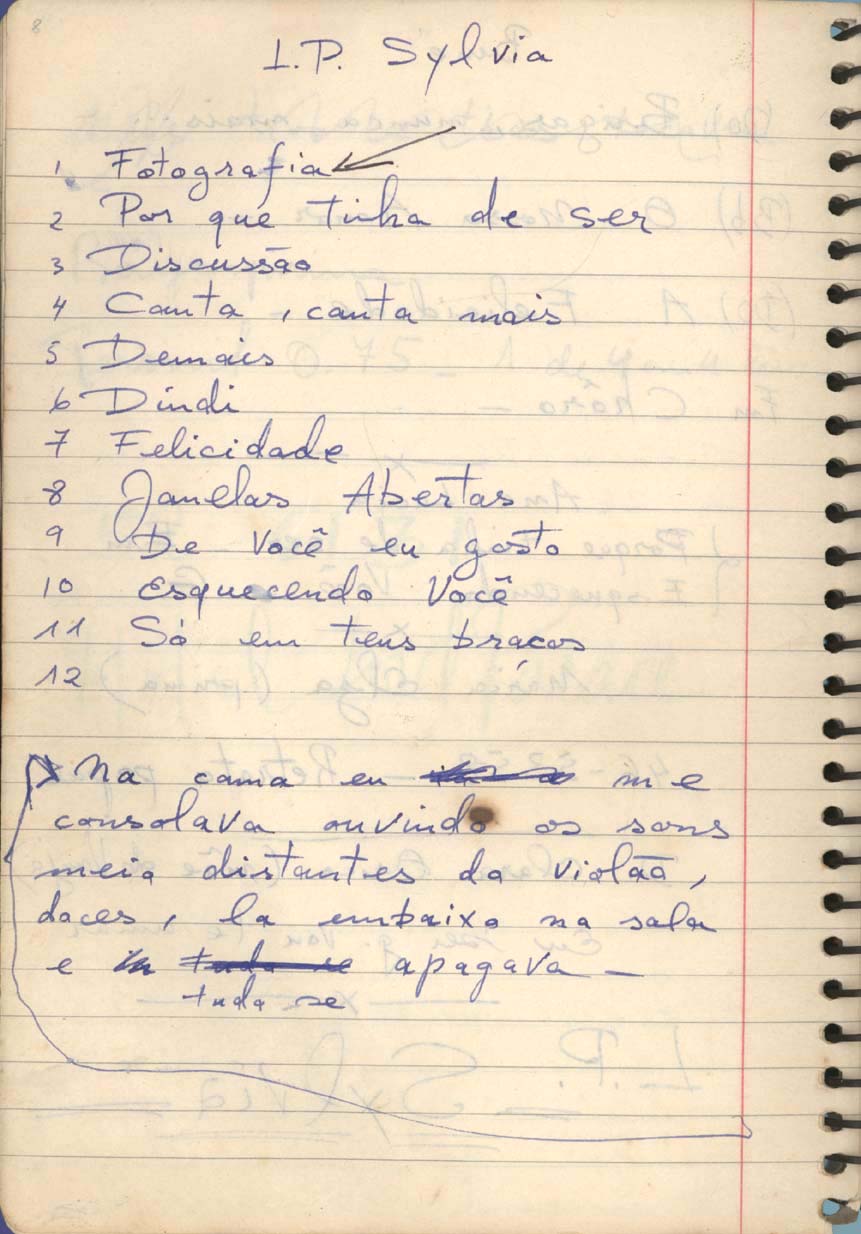 8
L.P. Sylvia
1 Fotografia
2 Por que tinha de ser
3 Discussão
4 Canta, canta mais
5 Demais
6 Dindi
7 Felicidade
8 Janelas Abertas
9 De Você eu gosto
10 Esquecendo Você
11 Só em teus braços
12
Na cama eu me
consolava ouvindo os sons
meio distantes do violão,
doces, la embaixo na sala
e apagava —
tudo se